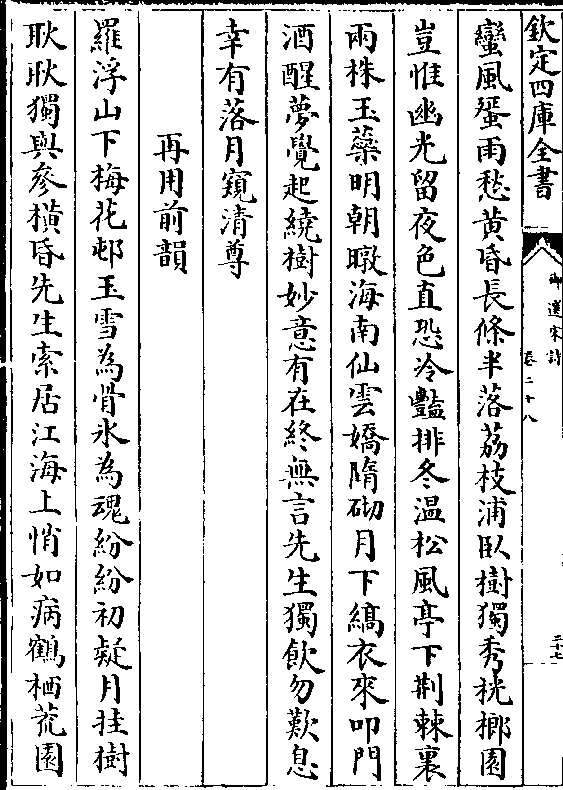 欽定四庫全書
御選宋詩
卷二十八
二十七
蠻風蜑雨愁黄昏長條半落荔枝浦臥樹獨秀桄榔園
豈惟幽光留夜色直恐冷豔排冬温松風亭下荆棘裏
兩株玉蘂明朝暾海南仙雲嬌隋砌月下縞衣來叩門
酒醒夢覺起繞樹妙意有在終無言先生獨飲勿歎息
幸有落月窺清尊
再用前韻
羅浮山下梅花邨玉雪為骨氷為魂紛紛初疑月挂樹
耿耿獨與參橫昏先生索居江海上悄如病鶴栖荒園